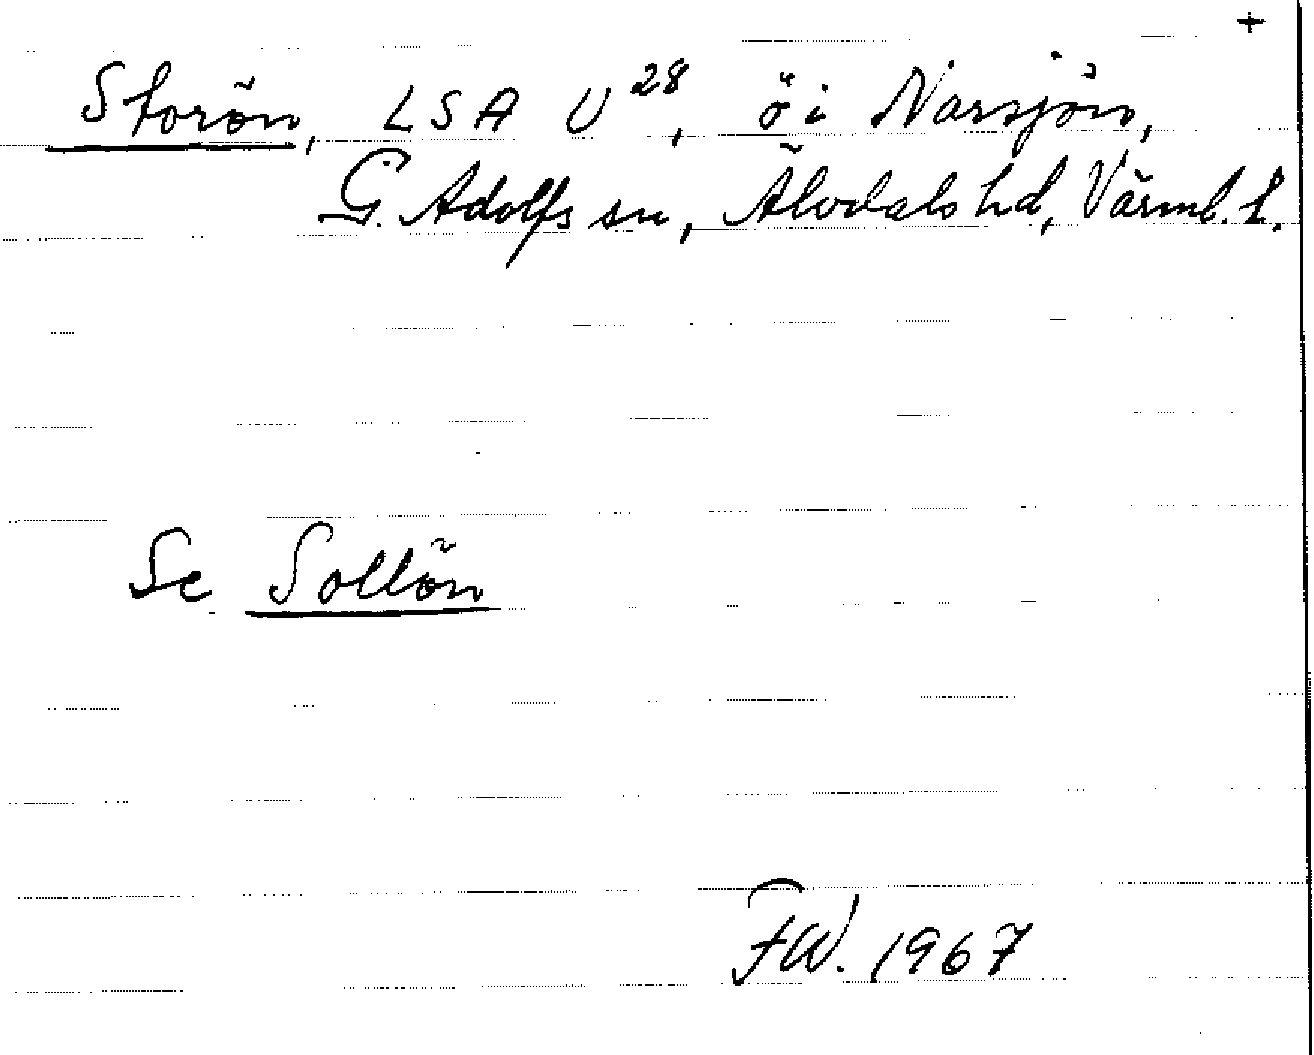 +
Storön, LSA U²⁸, ö i Narsjön,
G. Adolfs sn, Älvdals hd, Värml. l.
Se Sollön
FW. 1967